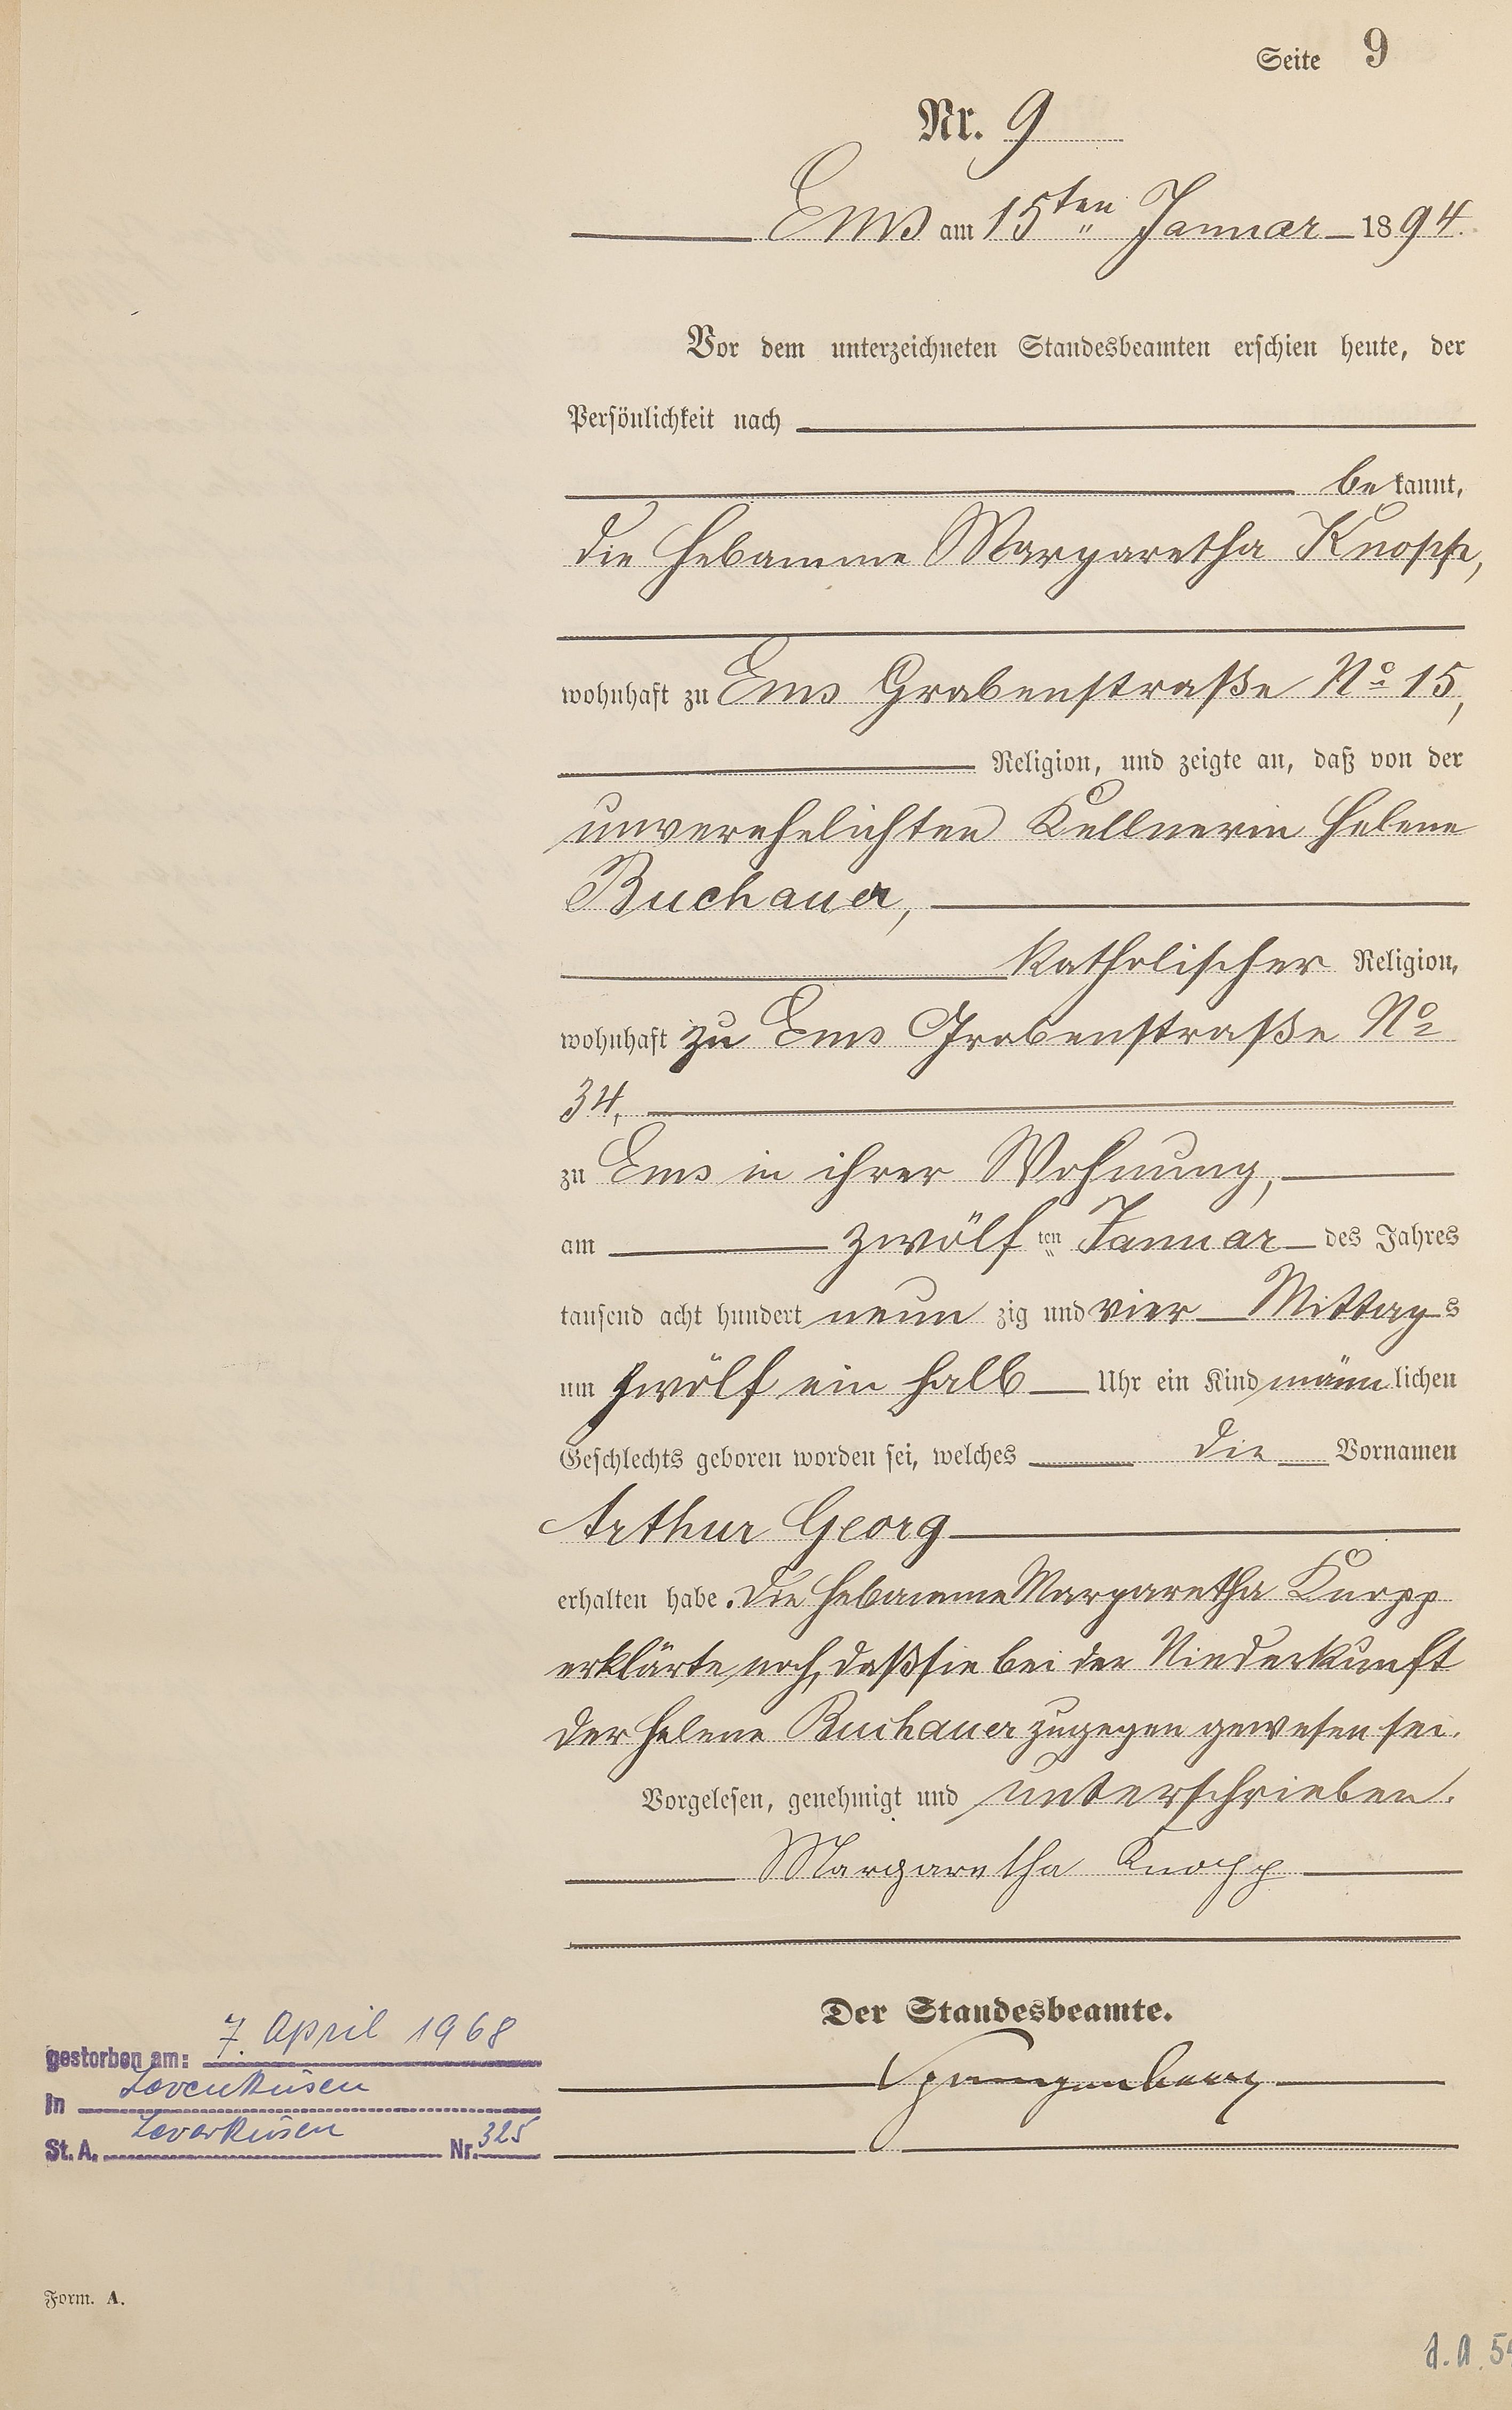 Seite 9
Nr. 9
Ems am 15ten Januar 1894.
Vor dem unterzeichneten Standesbeamten erschien heute, der
Persönlichkeit nach
bekannt,
die Hebamme Margaretha Knopp,
wohnhaft zu Ems Grabenstraße No 15,
Religion, und zeigte an, daß von der
unverehelichten Kellnerin Helene
Buchauer,
katholischer Religion,
wohnhaft zu Ems Grabenstraße No
34,
zu Ems in ihrer Wohnung,
am zwölften Januar des Jahres
tausend acht hundert neunzig und vier Mittags
um zwölf ein halb Uhr ein Kind männlichen
Geschlechts geboren worden sei, welches die Vornamen
Arthur Georg
erhalten habe. Die Hebamme Margaretha Knopp
erklärte noch, daß sie bei der Niederkunft
der Helene Buchauer zugegen gewesen sei.
Vorgelesen, genehmigt und unterschrieben.
Margaretha Knopp
Der Standesbeamte.
Spangenberg
gestorben am: 7. April 1968
in Leverkusen
St. A. Leverkusen Nr. 325
Form. A.